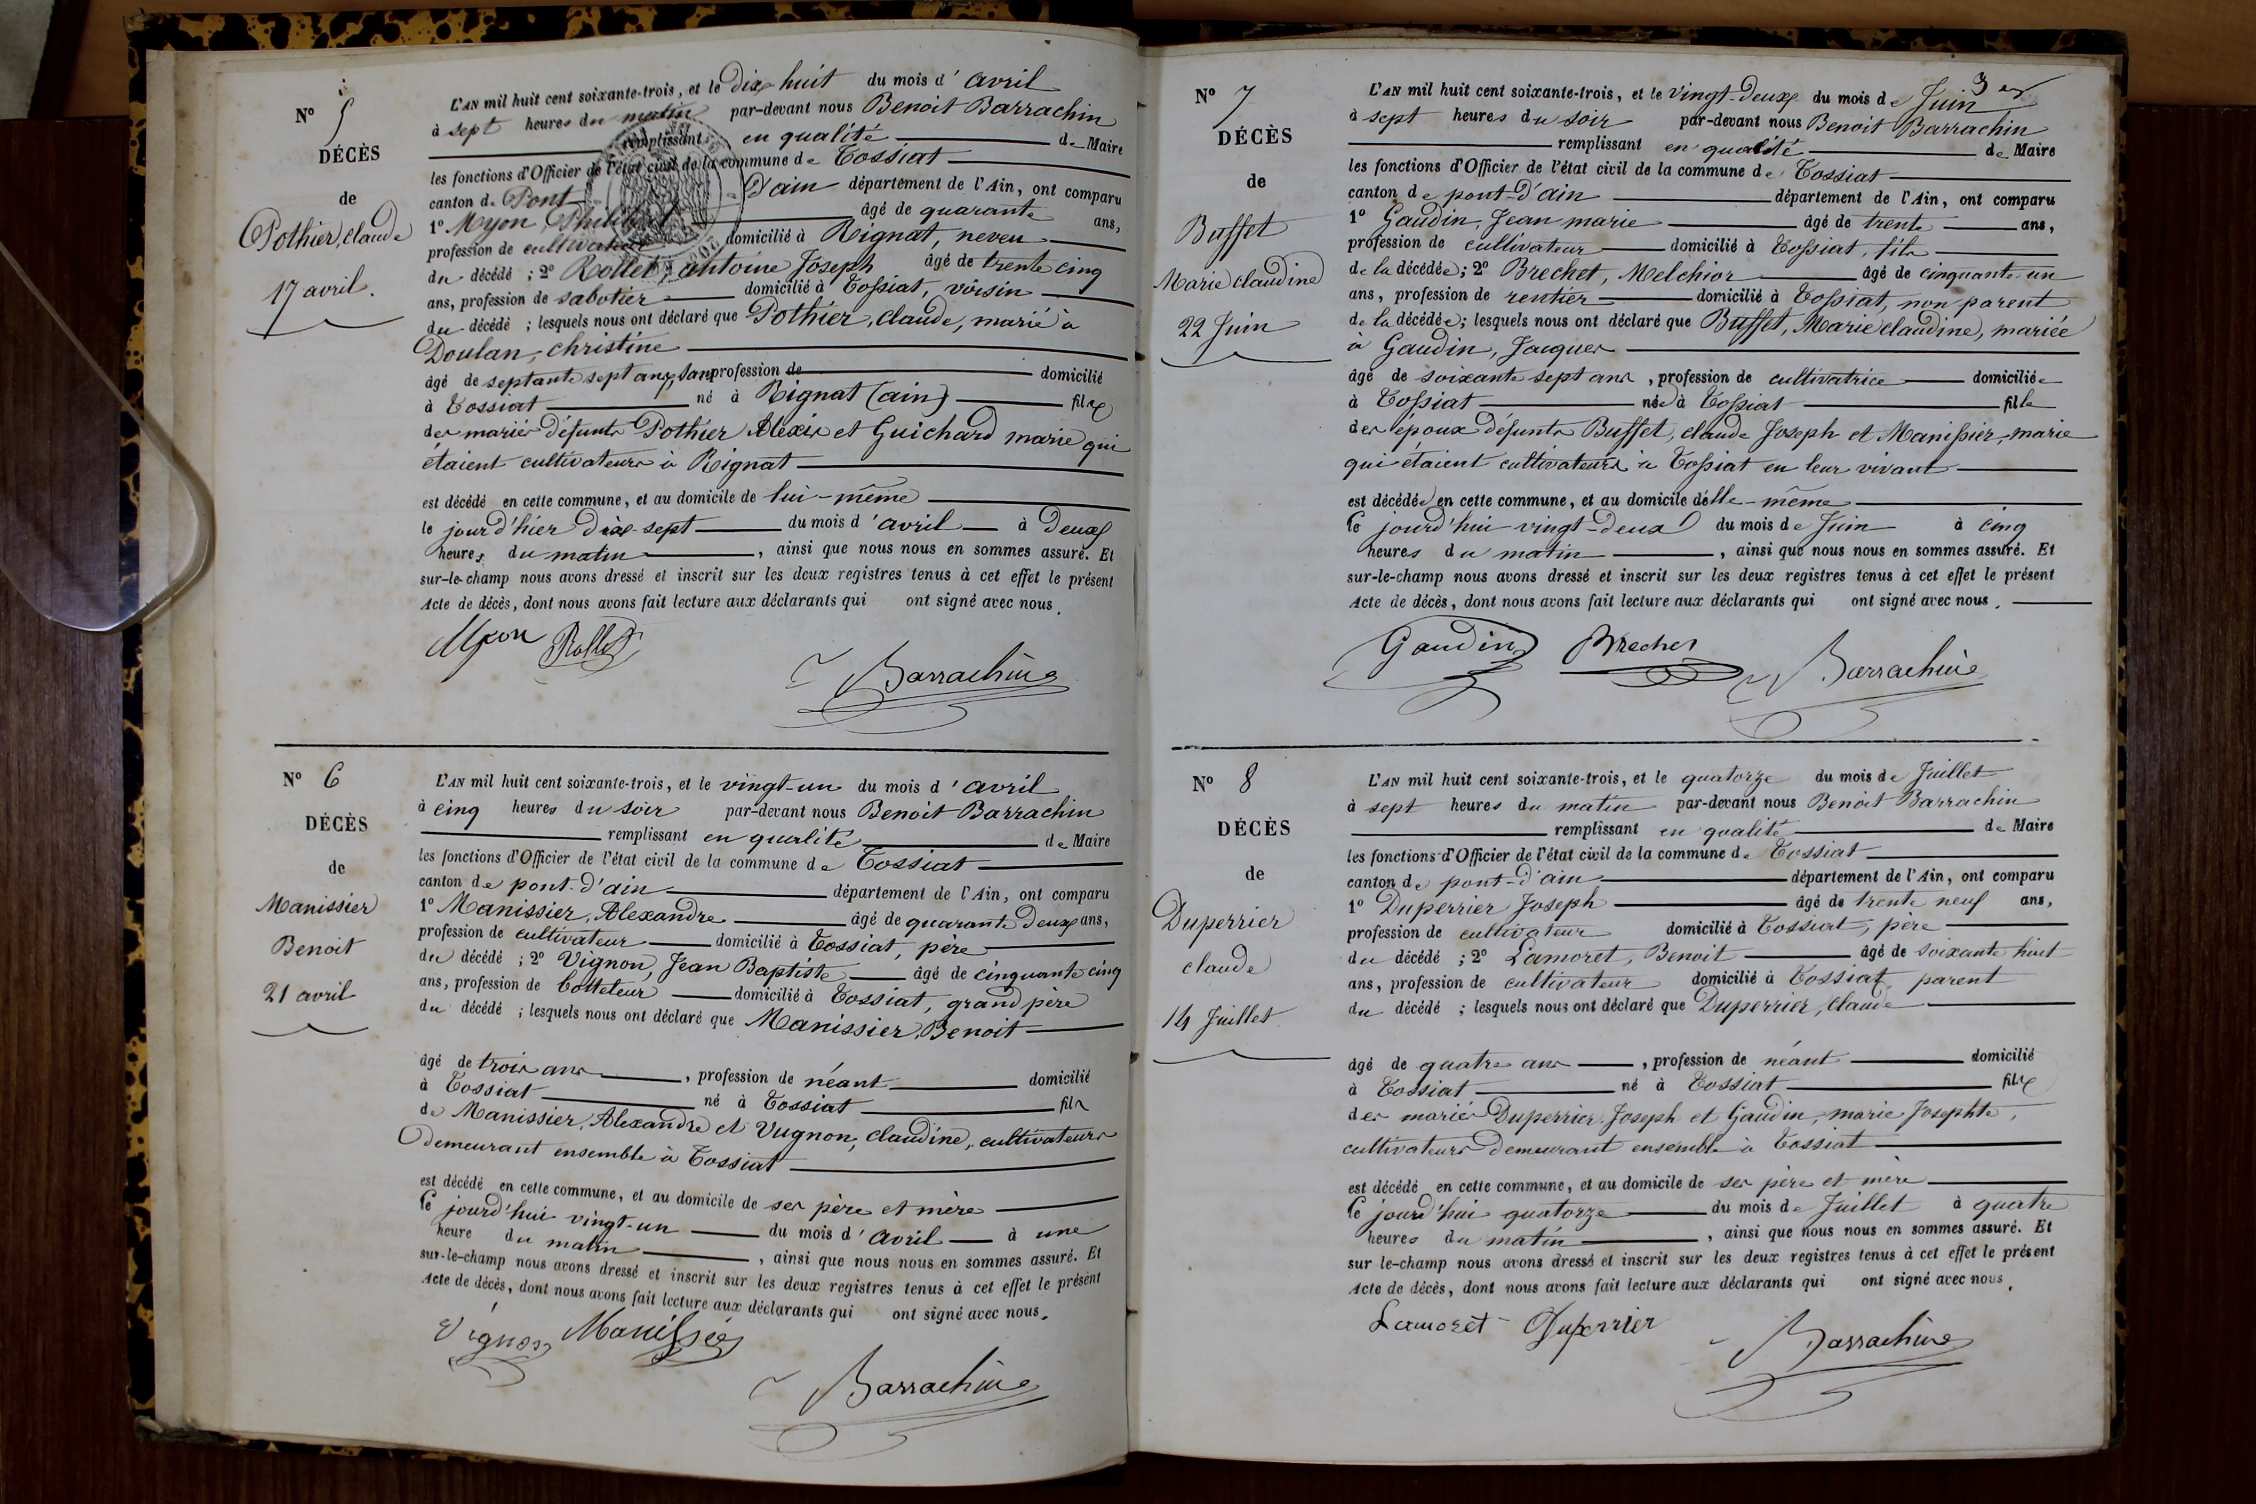 N° 5
DÉCÈS
de
Pothier, claude
17 avril.
L'AN mil huit cent soixante-trois, et le Dix-huit du mois d'avril
à sept heures du matin par-devant nous Benoit Barrachin
remplissant en qualité de Maire
les fonctions d'Officier de l'état civil de la commune de Tossiat
canton de Pont-D'ain département de l'Ain, ont comparu
1° Myon, Philibert âgé de quarante ans,
profession de cultivateur domicilié à Rignat, neveu
du décédé ; 2° Rollet, antoine Joseph âgé de trente cinq
ans, profession de sabotier domicilié à Tossiat, voisin
du décédé ; lesquels nous ont déclaré que Pothier, claude, marié à
Doulan, christine
âgé de septante sept ans, sans profession de domicilié
à Tossiat né à Rignat (ain) fils
des mariés défunts Pothier Alexis et Guichard marie qui
étaient cultivateurs à Rignat
est décédé en cette commune, et au domicile de lui-même
le jour d'hier Dix-sept du mois d'avril à Deux
heures du matin, ainsi que nous nous en sommes assuré. Et
sur-le-champ nous avons dressé et inscrit sur les deux registres tenus à cet effet le présent
Acte de décès, dont nous avons fait lecture aux déclarants qui ont signé avec nous.
Myon Rollet
Barrachin
N° 6
DÉCÈS
de
Manissier
Benoit
21 avril
L'AN mil huit cent soixante-trois, et le vingt-un du mois d'avril
à cinq heures du soir par-devant nous Benoit Barrachin
remplissant en qualité de Maire
les fonctions d'Officier de l'état civil de la commune de Tossiat
canton de pont-d'ain département de l'Ain, ont comparu
1° Manissier, Alexandre âgé de quarante Deux ans,
profession de cultivateur domicilié à Tossiat, père
du décédé ; 2° Vignon, Jean Baptiste âgé de cinquante cinq
ans, profession de botteleur domicilié à Tossiat, grand père
du décédé ; lesquels nous ont déclaré que Manissier, Benoit
âgé de trois ans, profession de néant domicilié
à Tossiat né à Tossiat fils
de Manissier, Alexandre et Vugnon, claudine, cultivateurs
Demeurant ensemble à Tossiat
est décédé en cette commune, et au domicile de ses père et mère
le jourd'hui vingt-un du mois d'avril à une
heure du matin, ainsi que nous nous en sommes assuré. Et
sur-le-champ nous avons dressé et inscrit sur les deux registres tenus à cet effet le présent
Acte de décès, dont nous avons fait lecture aux déclarants qui ont signé avec nous.
Vignon Manissier
Barrachin
3
N° 7
DÉCÈS
de
Buffet
Marie claudine
22 Juin
L'AN mil huit cent soixante-trois, et le vingt-Deux du mois de Juin
à sept heures du soir par-devant nous Benoit Barrachin
remplissant en qualité de Maire
les fonctions d'Officier de l'état civil de la commune de Tossiat
canton de pont-d'ain département de l'Ain, ont comparu
1° Gaudin, Jean marie âgé de trente ans,
profession de cultivateur domicilié à Tossiat, fils
de la décédée ; 2° Brechet, Melchior âgé de cinquante-un
ans, profession de rentier domicilié à Tossiat, non parent
de la décédée ; lesquels nous ont déclaré que Buffet, Marie claudine, mariée
à Gaudin, Jacques
âgé de soixante sept ans, profession de cultivatrice domiciliée
à Tossiat née à Tossiat fille
des époux défunts Buffet, claude Joseph et Manissier, marie
qui étaient cultivateurs à Tossiat en leur vivant
est décédée en cette commune, et au domicile d'elle-même
le jourd'hui vingt-deux du mois de Juin à cinq
heures du matin, ainsi que nous nous en sommes assuré. Et
sur-le-champ nous avons dressé et inscrit sur les deux registres tenus à cet effet le présent
Acte de décès, dont nous avons fait lecture aux déclarants qui ont signé avec nous.
Gaudin Brechet
Barrachin
N° 8
DÉCÈS
de
Duperrier
claude
14 Juillet
L'AN mil huit cent soixante-trois, et le quatorze du mois de Juillet
à sept heures du matin par-devant nous Benoit Barrachin
remplissant en qualité de Maire
les fonctions d'Officier de l'état civil de la commune de Tossiat
canton de pont-d'ain département de l'Ain, ont comparu
1° Duperrier Joseph âgé de trente neuf ans,
profession de cultivateur domicilié à Tossiat, père
du décédé ; 2° Lamoret, Benoit âgé de soixante huit
ans, profession de cultivateur domicilié à Tossiat, parent
du décédé ; lesquels nous ont déclaré que Duperrier, claude
âgé de quatre ans, profession de néant domicilié
à Tossiat né à Tossiat fils
des mariés Duperrier, Joseph et Gaudin, marie Josephte,
cultivateurs Demeurant ensemble à Tossiat
est décédé en cette commune, et au domicile de ses père et mère
le jourd'hui quatorze du mois de Juillet à quatre
heures du matin, ainsi que nous nous en sommes assuré. Et
sur le-champ nous avons dressé et inscrit sur les deux registres tenus à cet effet le présent
Acte de décès, dont nous avons fait lecture aux déclarants qui ont signé avec nous.
Lamoret Duperrier
Barrachin